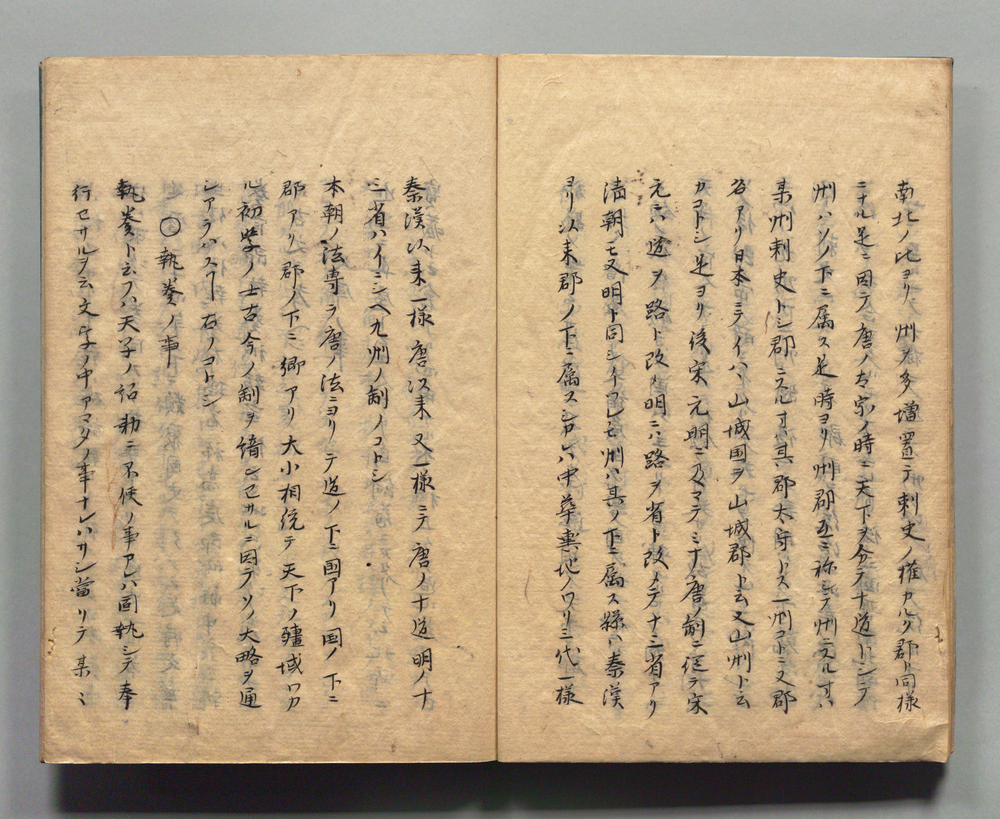 南北ノ比ヨリ州ヲ多増置テ刺史ノ権カルク郡ト同様
ニナル是ニ因テ唐ノ太宗ノ時ニ天下ヲ分テ十道トシテ
州ハソノ下ニ属ス是時ヨリ州郡互ニ称シテ州ニテルオハ
某州刺史トシ郡ニスルオハ其郡太守トス一州コトニ又郡
名アリ日本ニテイハヽ山城国ヲ山城郡ト云又山州ト云
カコトシ是ヨリ後宋元明ニ及マテミナ唐ノ制ニ従テ宋
元ニハ道ヲ路ト改メ明ニハ路ヲ省ト改メテ十三省アリ
清朝モ又明ト同シイツレモ州ハ其ノ下ニ属ス縣ハ秦漢
ヨリ以来郡ノ下ニ属ス シカレハ中華輿地ノワリ三代一様
秦漢以来一様唐以来又一様ニテ唐ノ十道明ノ十
三省ハイニシヘ九州ノ制ノコトシ
本朝ノ法専ラ唐ノ法ニヨリテ道ノ下ニ国アリ国ノ下ニ
郡アリ郡ノ下ニ郷アリ大小相統テ天下ノ疆域ワカ
ル初学ノ士古今ノ制ヲ諳シセサルニ因テソノ大略ヲ通
シアラハスコト右ノコトシ
○執奏ノ事
執奏ト云フハ天子ノ詔勅ニ不便ノ事アレハ固執シテ奉
行セサルヲ云文字ノ中アマタノ事ナレハサシ當リテ某ニ